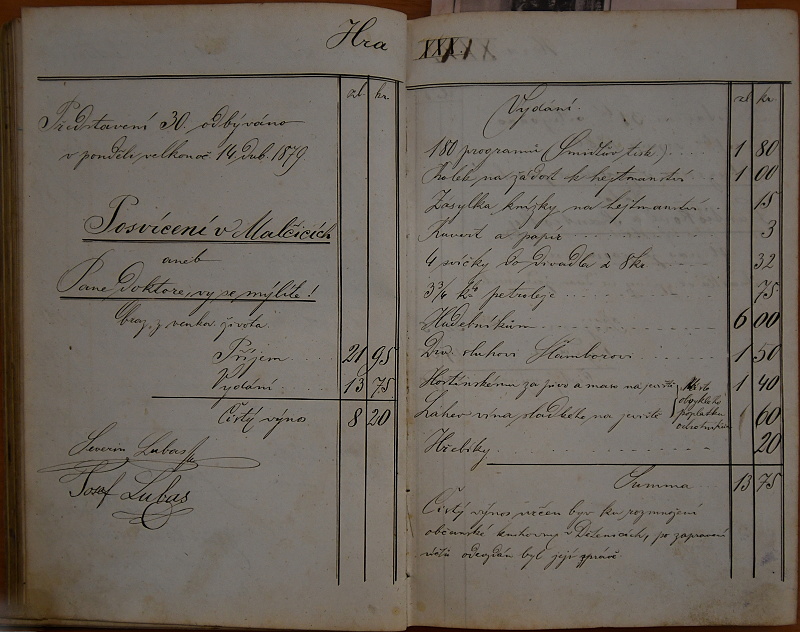 Hra XXX.
zl. kr.
Představení 30. odbýváno
v pondělí velkonoč. 14 dub. 1879.
Posvícení v Malčicích
aneb
Pane doktore, vy se mýlíte!
Obraz z venkov. života.
Příjem 21 95
Vydání 13 75
Čistý výnos 8 20
Severin Lubas
Josef Lubas
Vydání.
zl. kr.
180 programů (Šmidtův tisk) 1 80
Kolek na žádost k hejtmanství 1 00
Zasylka knížky na hejtmanství 15
Kuvert a papír 3
4 svíčky do divadla à 8 kr. 32
petroleje 75
Hudebníkům 6 00
Div. sluhovi Hamborovi 1 50
Hostinskému za pivo a maso na jeviště 1 40
Lahev vína sladkého na jeviště 60
Místo obvyklého poplatku
Hřebíky 20
Summa 13 75
Čistý výnos určen byv ku rozmnožení
občanské knihovny v Dětenicích, po zapravení
odevzdán byl její správě.